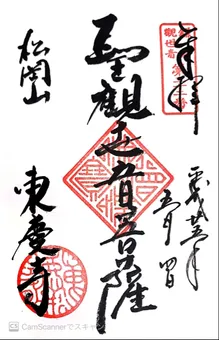 奉拝
平成廿五年
五月四日
聖観世音菩薩
松岡山
東慶寺
CS CamScannerでスキャン